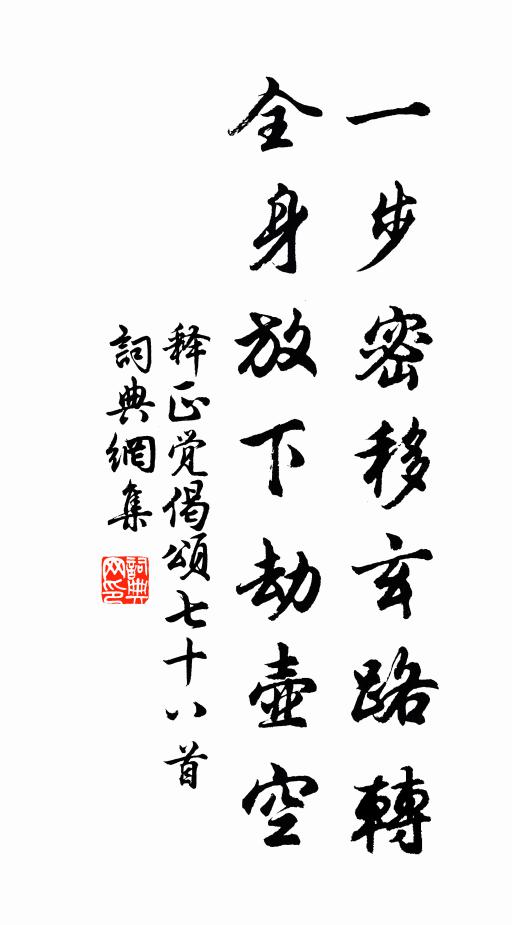 一步密移玄路轉
全身放下劫壺空
释正觉偈頌七十八首
詞典網集
詞典網印